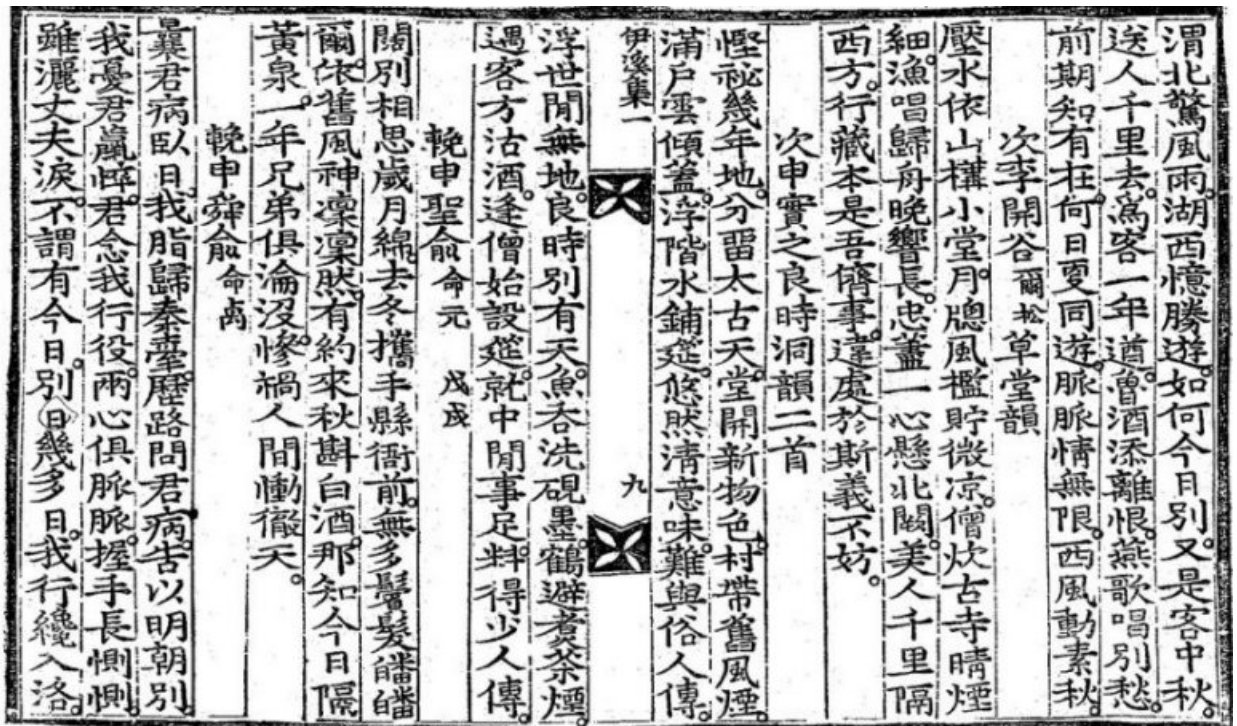 渭北驚風雨。湖西憶勝遊。如何今日別。又是客中秋。
送人千里去。爲客一年遒。魯酒添離恨。燕歌唱別愁。
前期知有在。何日更同遊。脈脈情無限。西風動素秋。
次李開谷爾松草堂韻
壓水依山構小堂。月牕風檻貯微凉。僧炊古寺晴煙
細。漁唱歸舟晚響長。忠藎一心懸北闕。美人千里隔
西方。行藏本是吾儕事。違處於斯義不妨。
次申實之良時洞韻二首
慳祕幾年地。分留太古天。堂開新物色。村帶舊風煙。
滿戶雲傾蓋。浮階水鋪筵。悠然淸意味。難與俗人傳。
伊溪集一
九
浮世閒無地。良時別有天。魚呑洗硯墨。鶴避煮茶煙。
遇客方沽酒。逢僧始設筵。就中閒事足。料得少人傳。
輓申聖俞命元 戊戌
闊別相思歲月綿。去冬攜手縣衙前。無多鬢髮皤皤
爾。依舊風神凜凜然。有約來秋斟白酒。那知今日隔
黃泉。一年兄弟俱淪沒。慘禍人間慟徹天。
輓申舜俞命禹
曩君病臥日。我脂歸秦牽。歷路問君病。苦以明朝別。
我憂君羸悴。君念我行役。兩心俱脈脈。握手長惻惻。
雖灑丈夫淚。不謂有今日。別日幾多日。我行纔入洛。